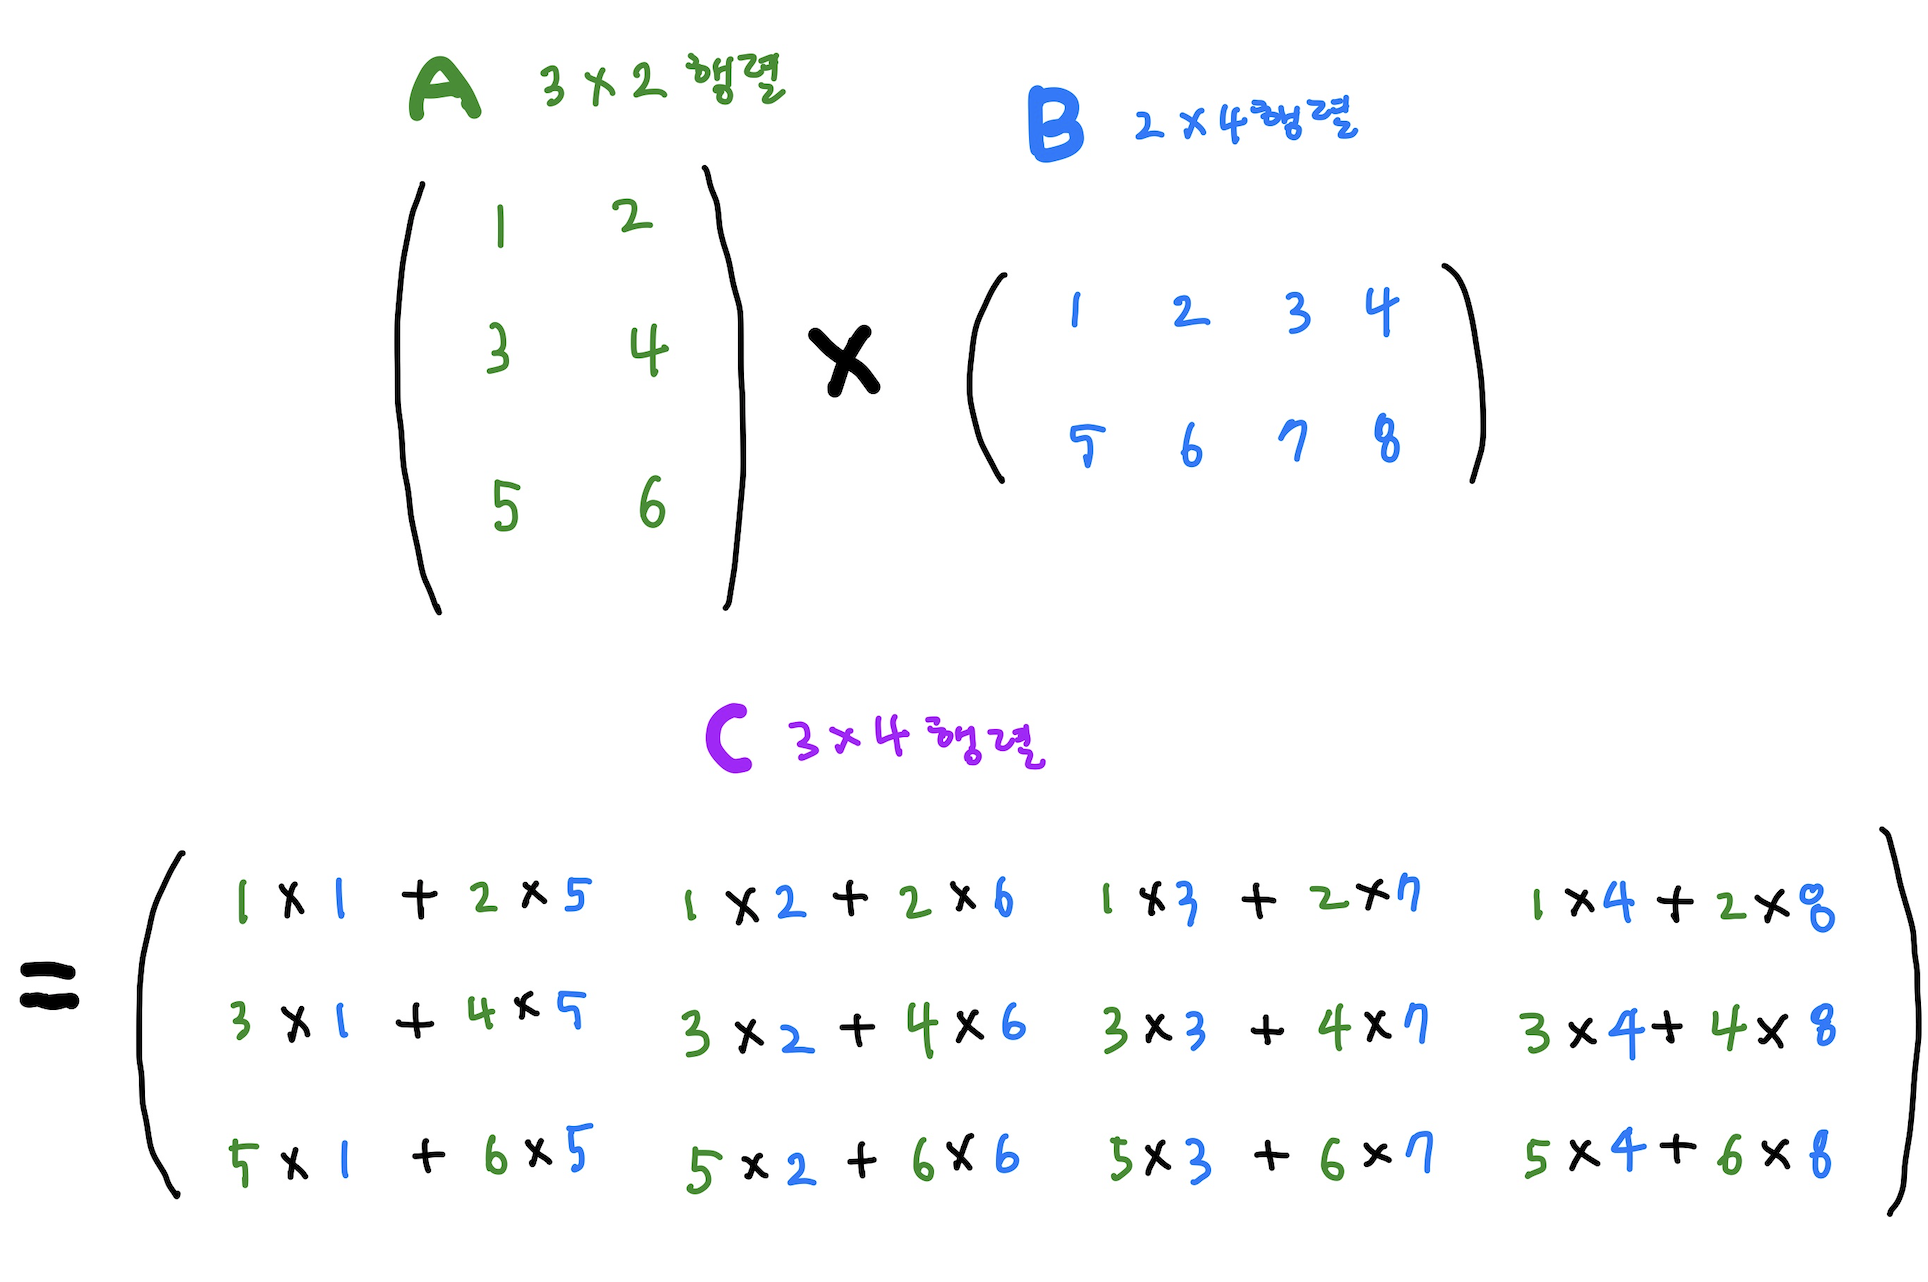 A 3×2 행렬
B 2×4행렬
1 2
3 4
5 6
×
1 2 3 4
5 6 7 8
C 3×4 행렬
=
1×1 + 2×5 1×2 + 2×6 1×3 + 2×7 1×4 + 2×8
3×1 + 4×5 3×2 + 4×6 3×3 + 4×7 3×4 + 4×8
5×1 + 6×5 5×2 + 6×6 5×3 + 6×7 5×4 + 6×8